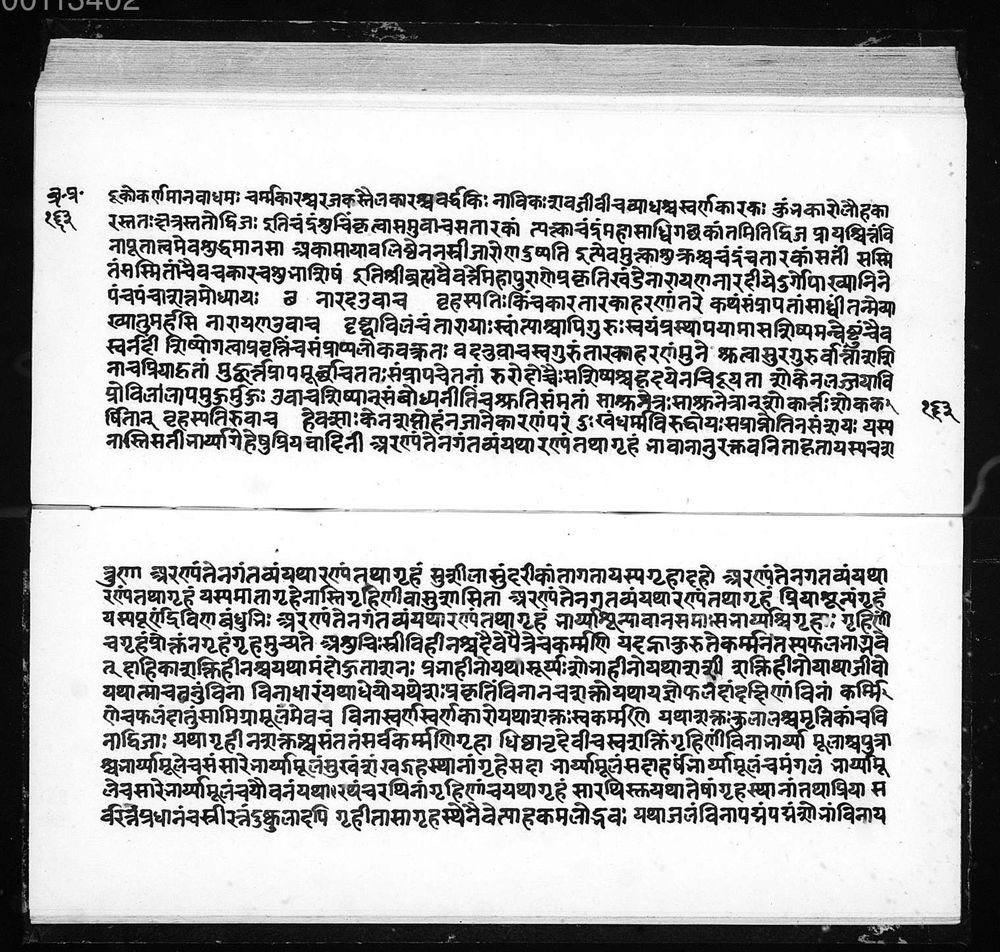 00113402
ब्र॰ प्र॰
१६३
कर्णमानवाधमः चर्मकारश्च रजकस्तैलकारश्च वर्द्धकिः नाविकः शवजीवी च व्याधश्च स्वर्णकारकः कुंभकारो लौहका
इति चंद्रं शुचिं कृत्वा समुवाच स तारकां त्यत्का चंद्रं महासाध्वि गछ कांतमिति द्विज प्रायश्चित्तं वि
ना पूता त्वमेव शुद्धमानसा अकामा या वलिष्ठेन न स्त्री जारेण दुष्यति इत्येवमुत्का शुक्रश्च चंद्रं च तारकां सतीं सस्मि
तं सस्मितां चैव चकार च शुभाशिषं इति श्रीब्रह्मवैवर्त्ते महापुराणे प्रकृतिखंडे नारायणनारदीये दुर्गोपाख्याने
पंचपंचाशत्तमोध्यायः नारद उवाच वृहस्पतिः किं चकार तारकाहरणांतरे कथं संप्राप तां साध्वीं तन्मे व्या
ख्यातुमर्हसि नारायण उवाच दृष्ट्वा विलंवं तारायाः स्नांत्याश्चापि गुरुः स्वयं प्रस्थापयामास शिष्यमन्वेष्टुं चैव
स्वर्नदीं शिष्यो गत्वा प्रवृत्तिं च संप्राप्य लोकवक्त्रतः वदनुवाच स्वगुरुं तारकाहरणं मुने श्रुत्वा सुरगुरुर्वार्त्तां शशि
ना च प्रियां हृतां मुहूर्त्तं प्राप मूर्छां च ततः संप्राप चेतनां रुरोदोच्चैः सशिष्यश्च हृदयेन विदूयता शोकेन लज्जयावि
प्रो विललाप मुहुर्मुहुः उवाच शिष्यान् संबोध्य नीतिं च श्रुतिसंमतां साश्रुनेत्रः साश्रुनेत्रान् शोकार्त्तः शोकक-
१६३
र्षितान् वृहस्पतिरुवाच हे वत्साः केन शप्तोहं न जाने कारणं परं दुःखं धर्मविरुद्धो यः स प्राप्नोति न संशयः यस्य
नास्ति सती भार्य्या गेहेषु प्रियवादिनी अरण्यं तेन गंतव्यं यथारण्यं तथा गृहं भावानानुरक्त वनिता हृता यस्य च श
त्रुणा अरण्यं तेन गंतव्यं यथारण्यं तथा गृहं सुशीला सुंदरी कांता गता यस्य गृहादहो अरण्यं तेन गंतव्यं यथा
रण्यं तथा गृहं यस्य माता गृहे नास्ति गृहिणी वा सुशासिता अरण्यं तेन गंतव्यं यथारण्यं तथा गृहं प्रियाशून्यं गृहं
यस्य पूर्णं द्रविणबंधुभिः अरण्यं तेन गंतव्यं यथारण्यं तथा गृहं भार्य्याशून्या वनसमाः सभार्य्याश्च गृहाः गृहिणी
च गृहं प्रोक्तं न गृहं गृहमुच्यते अशुचिः स्त्रीविहीनश्च दैवे पैत्रे च कर्म्मणि यदह्ना कुरुते कर्म्म न तस्य फलभाग्भवे
त् दाहिकाशक्तिहीनश्च यथा मंदो हुताशनः प्रभाहीनो यथा सूर्य्यः शोभाहीनो यथा शशी शक्तिहीनो यथा जीवो
यथात्मा च तनुं विना विनाधारं यथाधेयो यथेशः प्रकृतिं विना न च शक्तो यथा यज्ञो फलदां दक्षिणां विना कर्म्मि
णे च फलं दातुं सामग्री मूलमेव च विना स्वर्णं स्वर्णकारो यथाशक्तः स्वकर्म्मणि यथाशक्तः कुलालश्च मृत्तिकां च वि
ना द्विजाः यथा गृही नशक्तश्च संततं सर्वकर्म्मणि गृहाधिष्ठातृदेवीं च स्वशक्तिं गृहिणीं विना भार्य्यामूलाश्च पुत्रा
श्च भार्य्यामूलं च संसारे भार्य्यामूलं सुखं गृहस्थानां गृहे सदा भार्य्यामूलं सदा हर्षं भार्य्यामूलं च मंगलं भार्य्यामू
लं च सारे भार्य्यामूलं च यौवनं यथा रथं च रथिनां गृहिणां च यथा गृहं सारथिस्तु यथा तेषां गृहस्थानां तथा प्रिया स
र्वरत्नं प्रधानं च स्त्रीरत्नं दुष्कुलादपि गृहीता सा गृहस्थेनैवेत्याह कमलोद्भवः यथा जलं विना पद्मं पद्मं शोभां विना य